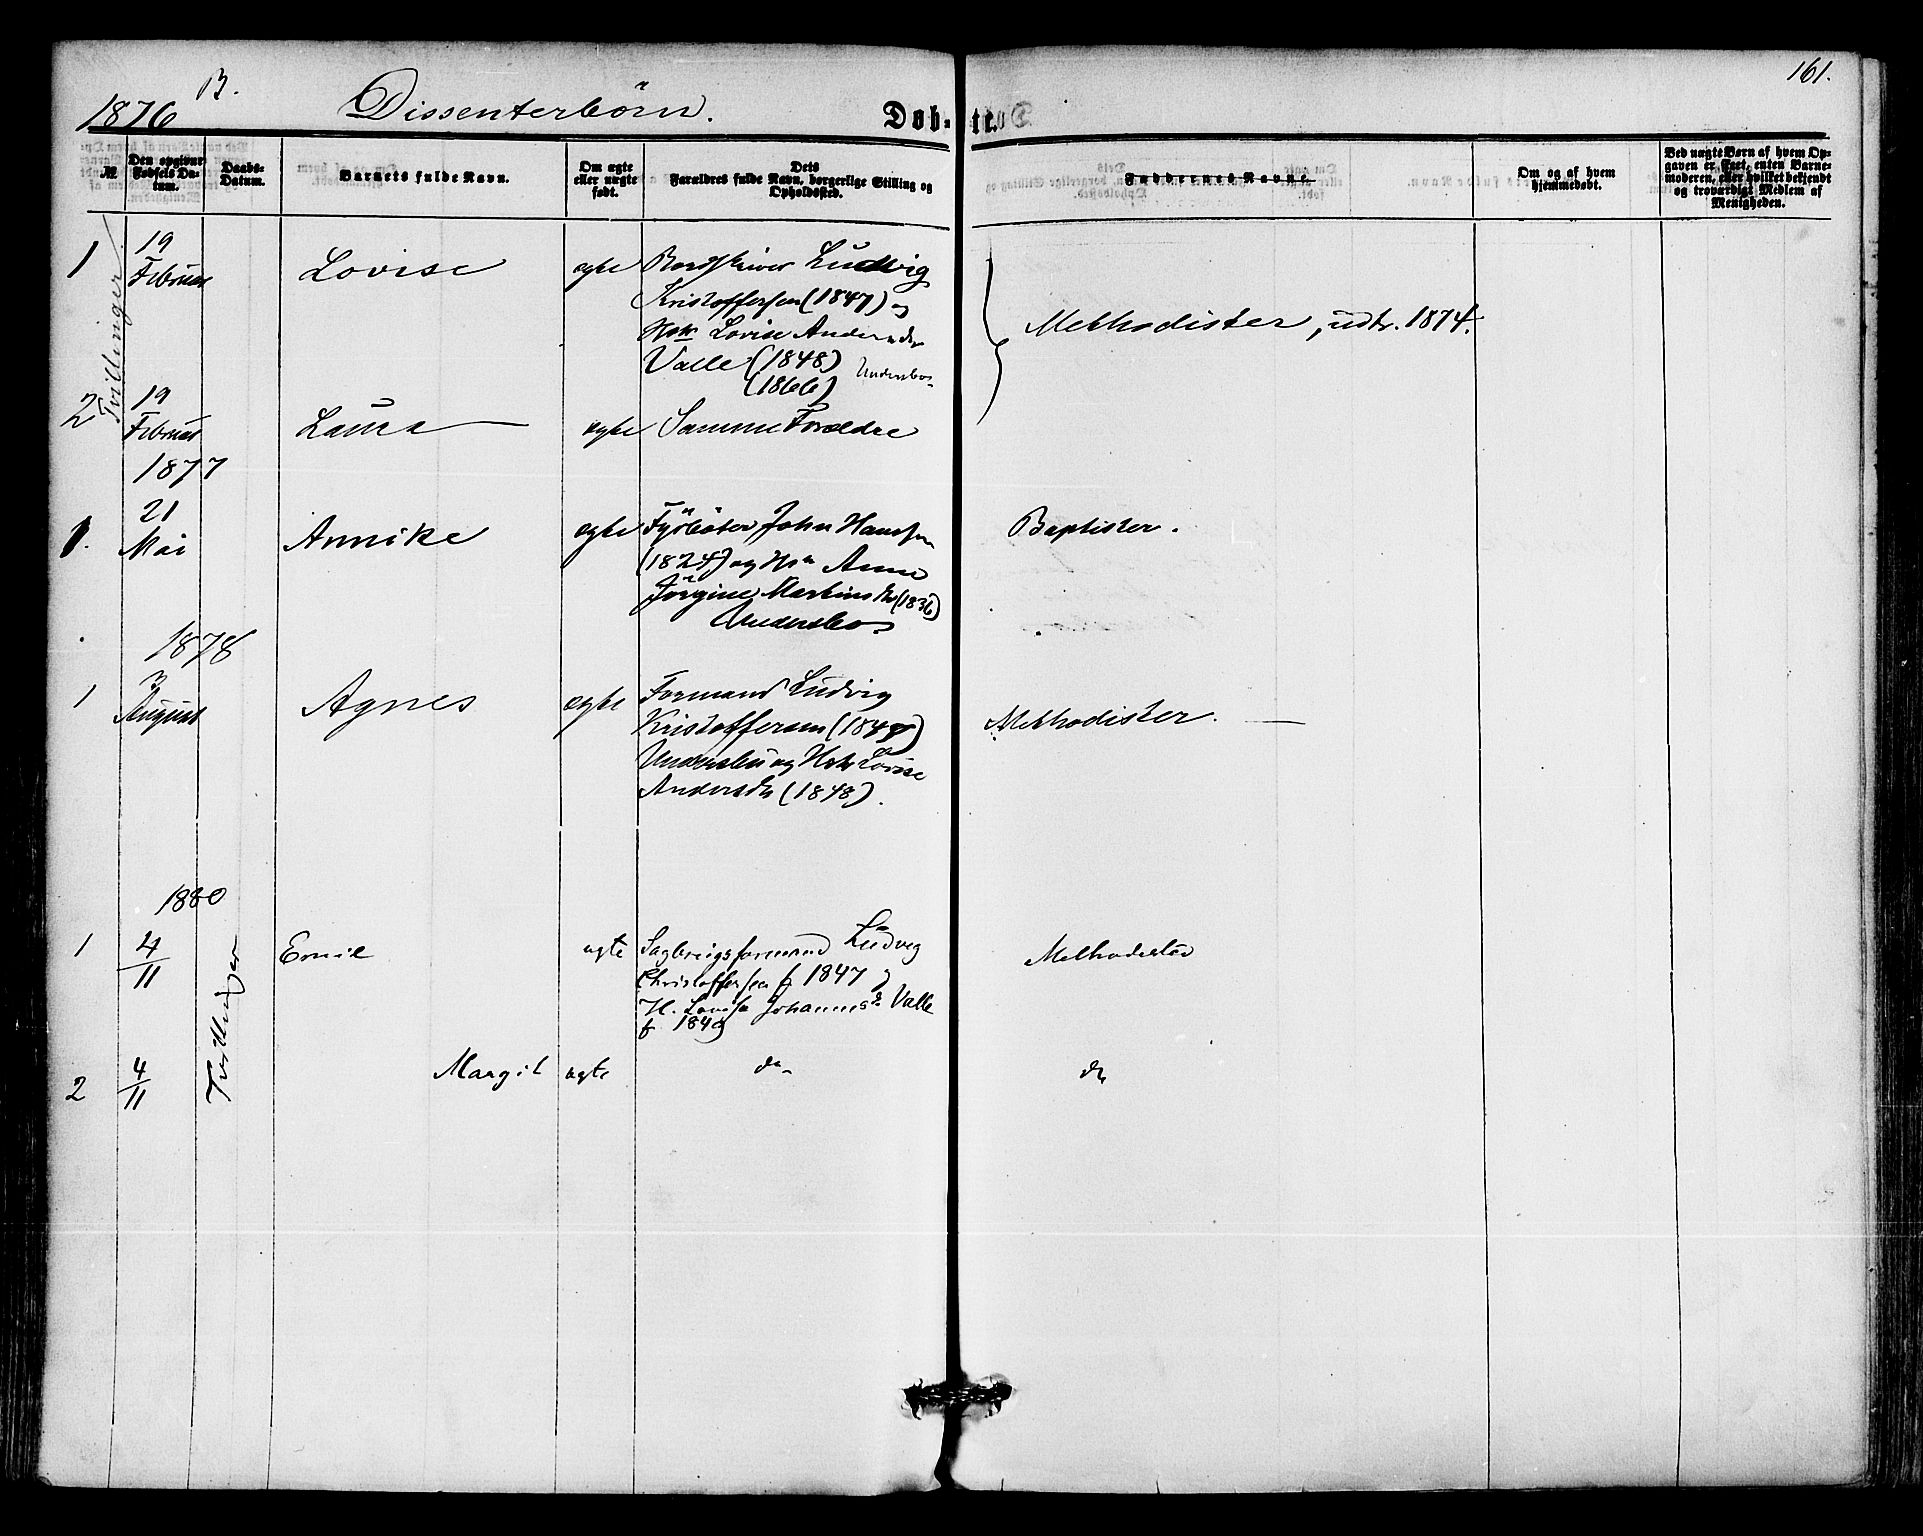 1876
B.
Dissenterbörn.
Døb-te.
161.
№
Den opgivne Fødsels Datum.
Daabs-Datum.
Barnets fulde Navn.
Om ægte eller uægte født.
Dets Forældres fulde Navn, borgerlige Stilling og Opholdssted.
Faddernes Navne.
Om og af hvem hjemmedøbt.
Ved uægte Børn af hvem Opgaven er skeet, enten Barnemoderen, eller hvilket bekjendt og troværdigt Medlem af Menigheden.
Tvillinger
1
19
Februar
Lovise
ægte
Ludvig
Kristoffersen (1847) og
Hstr Lovise Andersdtr
Valle (1848)
(1866)
Methodister, udtr. 1874.
2
19
Februar
Laura
ægte
Samme Forældre
1877
1.
21
Mai
Annike
ægte
Fyrböter John Hanssen
(1824) og Hstr Anne
Jörgine Martinsdtr (1836)
Baptister.
1878
1
3
August
Agnes
ægte
Formand Ludvig
Kristoffersen (1847)
og Hstr Lovise
Andersdtr (1848).
Methodister.
1880
Tvillinger
1
4/11
Emil
ægte
Sagbrugsformand Ludvig
Christoffersen f. 1847 og
H. Lovise Johannesd. Valle
f. 1849
Methodister
2
4/11
Margit
ægte
do
do